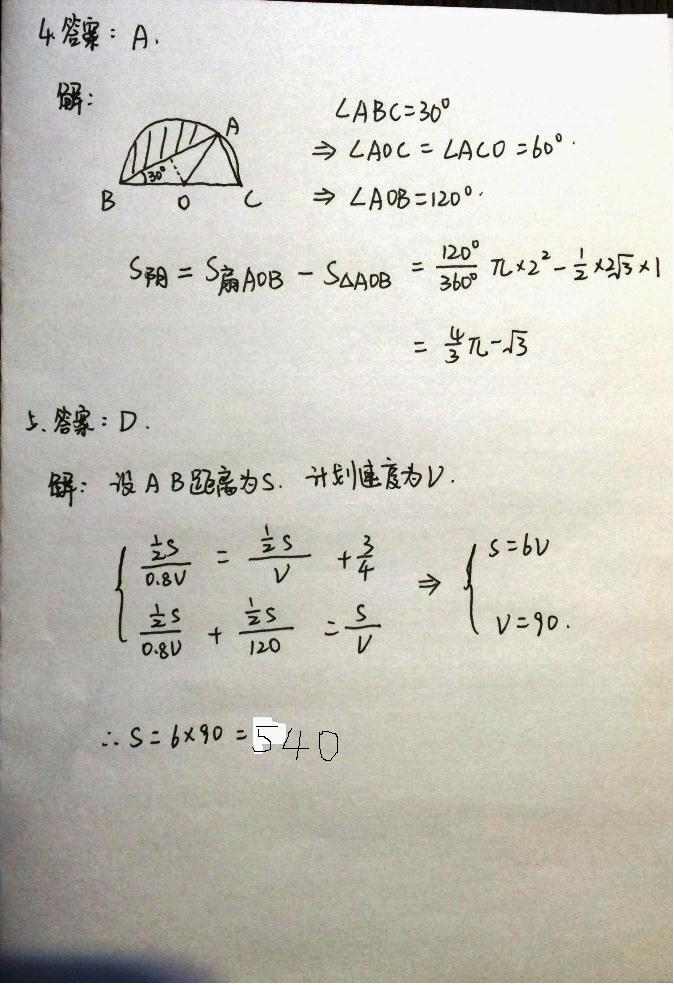 4. 答案：A.
解：
A
30°
B O C
∠ABC=30°
⇒ ∠AOC = ∠ACO = 60°.
⇒ ∠AOB=120°.
S阴 = S扇AOB − S△AOB = 120°/360° π×2² − 1/2 ×2√3 ×1
= 4/3 π−√3
5. 答案：D.
解：设AB距离为S. 计划速度为V.
{ ½S/0.8V = ½S/V + 3/4 ⇒ { S=6V
½S/0.8V + ½S/120 = S/V V=90.
∴ S = 6×90 = 540